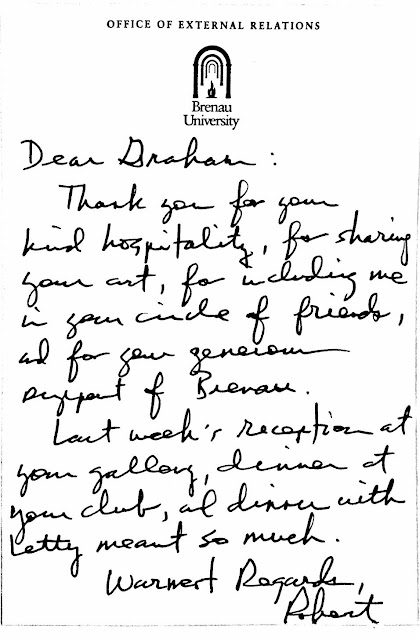 OFFICE OF EXTERNAL RELATIONS
Brenau
University
Dear Graham:
Thank you for your
kind hospitality, for sharing
your art, for including me
in your circle of friends,
and for your generous
support of Brenau.
Last week's reception at
your gallery, dinner at
your club, and dinner with
Letty meant so much.
Warmest Regards,
Robert